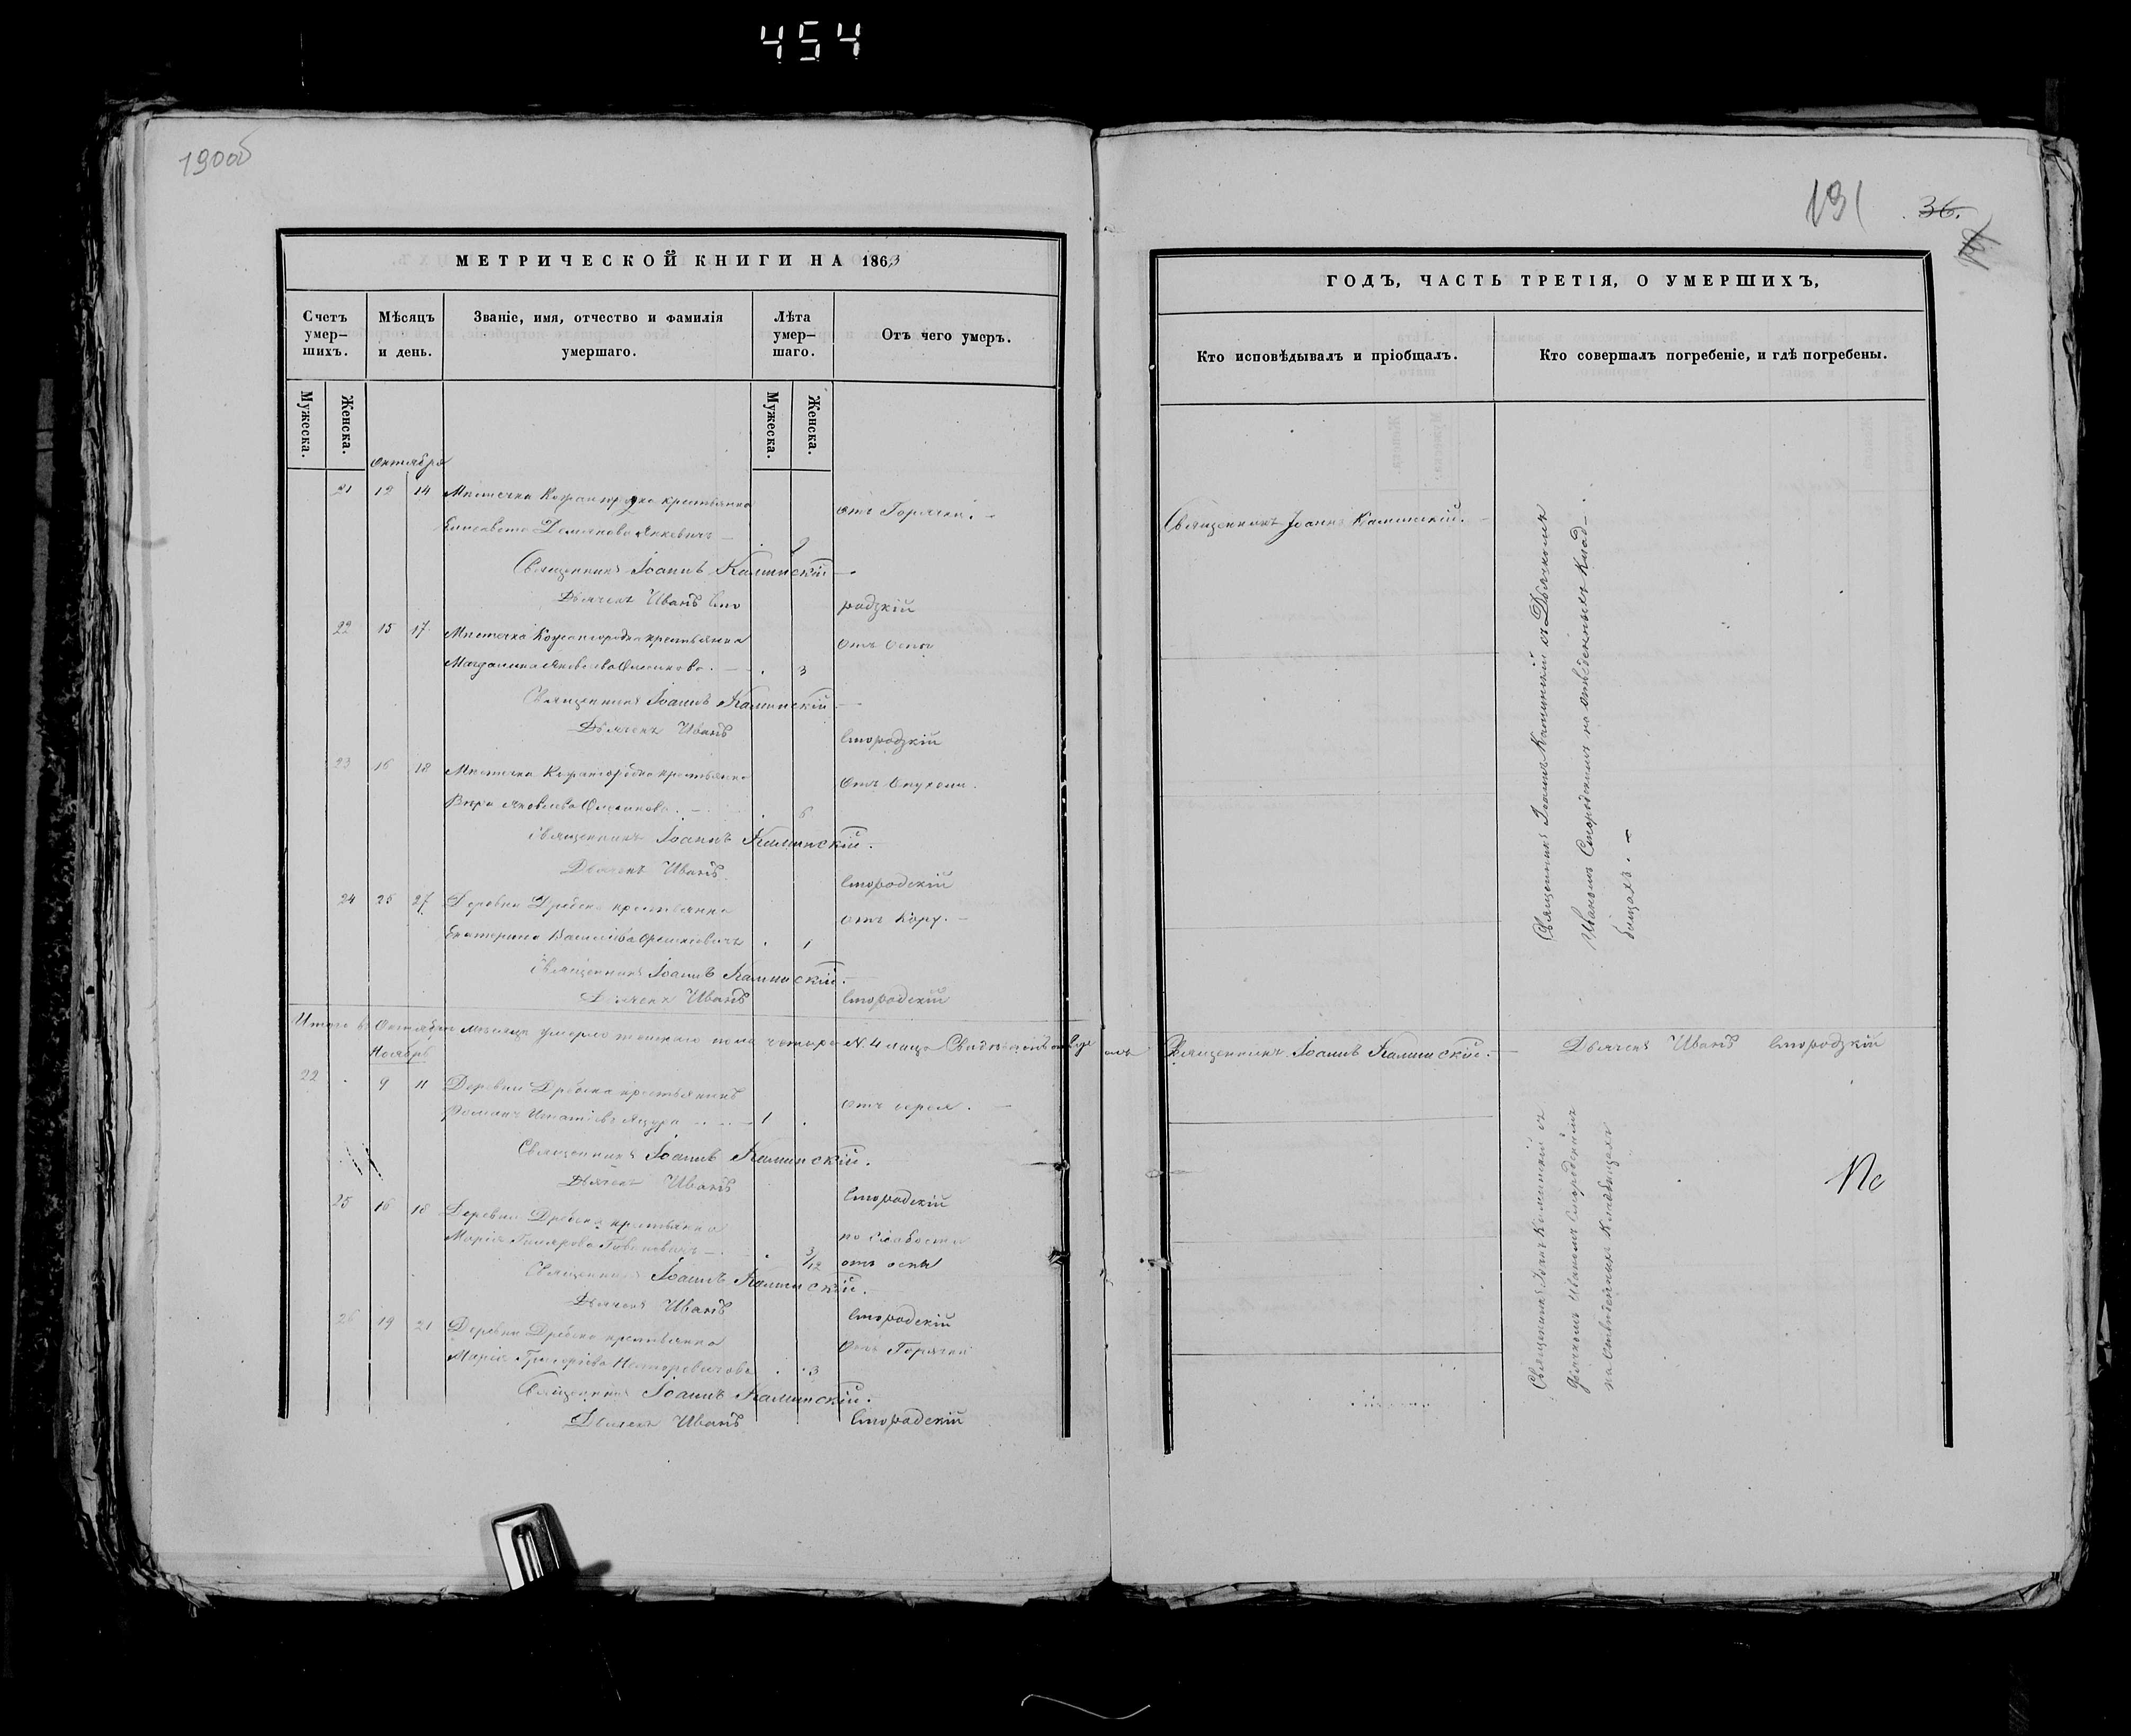 454
190об
191
36.
МЕТРИЧЕСКОЙ КНИГИ НА 1863
Счетъ умер-шихъ.
Мѣсяцъ и день.
Званіе, имя, отчество и фамилія умершаго.
Лѣта умер-шаго.
Отъ чего умеръ.
Мужеска.
Женска.
Мужеска.
Женска.
Октября
21 12 14 Мѣстечка Кожангородка крестьянка
отъ Горячки.
Елисавета Демянова Янкевичъ
Священникъ Іоаннъ Калинскій
Дьячекъ Иванъ Стородзкій
22 15 17 Мѣстечка Кожангородка крестьянка
отъ Оспы
Магдалина Яковлева 3
Священникъ Іоаннъ Калинскій
Дьячекъ Иванъ Стородзкій
23 16 18 Мѣстечка Кожангородка крестьянка
отъ Опухоли.
Вѣра Яковлева 6
Священникъ Іоаннъ Калинскій.
Дьячекъ Иванъ Стородскій
24 25 27 Деревни Дребска крестьянка
отъ Кору.
Екатерина Василіева 1
Священникъ Іоаннъ Калинскій.
Дьячекъ Иванъ Стородскій
Итого въ Октябрѣ мѣсяцѣ умерло женскаго пола четыре № 4 лица
Ноябрь
22 9 11 Деревни Дребска крестьянинъ
Романъ Игнатіевъ 1
Священникъ Іоаннъ Калинскій.
Дьячекъ Иванъ Стородскій
25 16 18 Деревни Дребска крестьянка
по слабости
Марія 3/12 отъ оспы
Священникъ Іоаннъ Калинскій.
Дьячекъ Иванъ Стородскій
26 19 21 Деревни Дребска крестьянка
Отъ Горячки
Марія Григоріева 3
Священникъ Іоаннъ Калинскій.
Дьячекъ Иванъ Стородскій
ГОДЪ, ЧАСТЬ ТРЕТІЯ, О УМЕРШИХЪ,
Кто исповѣдывалъ и пріобщалъ.
Кто совершалъ погребеніе, и гдѣ погребены.
Священникъ Іоаннъ Калинскій.
Священникъ Іоаннъ Калинскій съ Дьячкомъ
Иваномъ Стородскимъ на отведенныхъ Клад-
бищахъ.
Священникъ Іоаннъ Калинскій.
Дьячекъ Иванъ Стородзкій
Священникъ Іоаннъ Калинскій съ
Дьячкомъ Иваномъ Стородскимъ
на Отведенныхъ Кладбищахъ